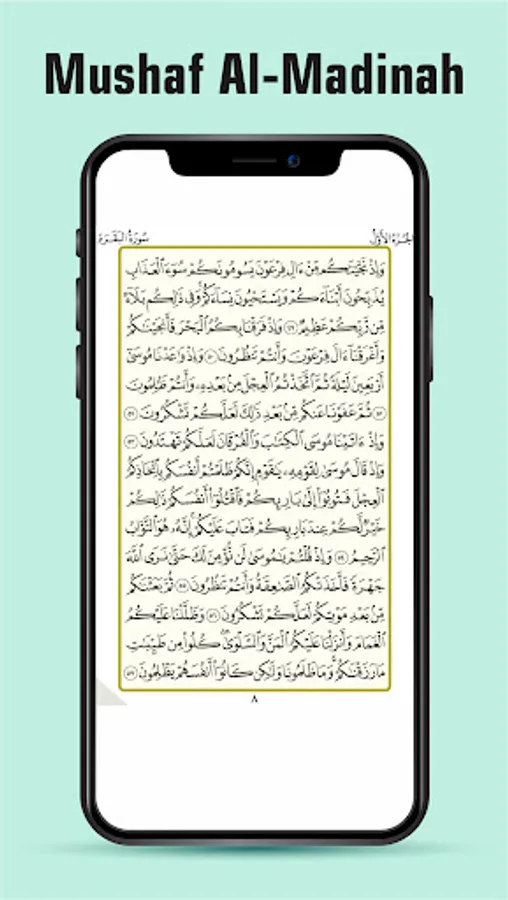 Mushaf Al-Madinah
الجزء الأول
سورة البقرة
وَإِذْ نَجَّيْنَٰكُم مِّنْ ءَالِ فِرْعَوْنَ يَسُومُونَكُمْ سُوٓءَ ٱلْعَذَابِ
يُذَبِّحُونَ أَبْنَآءَكُمْ وَيَسْتَحْيُونَ نِسَآءَكُمْ ۚ وَفِى ذَٰلِكُم بَلَآءٌ
مِّن رَّبِّكُمْ عَظِيمٌ ۝٤٩ وَإِذْ فَرَقْنَا بِكُمُ ٱلْبَحْرَ فَأَنجَيْنَٰكُمْ
وَأَغْرَقْنَآ ءَالَ فِرْعَوْنَ وَأَنتُمْ تَنظُرُونَ ۝٥٠ وَإِذْ وَٰعَدْنَا مُوسَىٰٓ
أَرْبَعِينَ لَيْلَةً ثُمَّ ٱتَّخَذْتُمُ ٱلْعِجْلَ مِنۢ بَعْدِهِۦ وَأَنتُمْ ظَٰلِمُونَ
۝٥١ ثُمَّ عَفَوْنَا عَنكُم مِّنۢ بَعْدِ ذَٰلِكَ لَعَلَّكُمْ تَشْكُرُونَ ۝٥٢
وَإِذْ ءَاتَيْنَا مُوسَى ٱلْكِتَٰبَ وَٱلْفُرْقَانَ لَعَلَّكُمْ تَهْتَدُونَ ۝٥٣
وَإِذْ قَالَ مُوسَىٰ لِقَوْمِهِۦ يَٰقَوْمِ إِنَّكُمْ ظَلَمْتُمْ أَنفُسَكُم بِٱتِّخَاذِكُمُ
ٱلْعِجْلَ فَتُوبُوٓا۟ إِلَىٰ بَارِئِكُمْ فَٱقْتُلُوٓا۟ أَنفُسَكُمْ ذَٰلِكُمْ
خَيْرٌ لَّكُمْ عِندَ بَارِئِكُمْ فَتَابَ عَلَيْكُمْ ۚ إِنَّهُۥ هُوَ ٱلتَّوَّابُ
ٱلرَّحِيمُ ۝٥٤ وَإِذْ قُلْتُمْ يَٰمُوسَىٰ لَن نُّؤْمِنَ لَكَ حَتَّىٰ نَرَى ٱللَّهَ
جَهْرَةً فَأَخَذَتْكُمُ ٱلصَّٰعِقَةُ وَأَنتُمْ تَنظُرُونَ ۝٥٥ ثُمَّ بَعَثْنَٰكُم
مِّنۢ بَعْدِ مَوْتِكُمْ لَعَلَّكُمْ تَشْكُرُونَ ۝٥٦ وَظَلَّلْنَا عَلَيْكُمُ
ٱلْغَمَامَ وَأَنزَلْنَا عَلَيْكُمُ ٱلْمَنَّ وَٱلسَّلْوَىٰ ۖ كُلُوا۟ مِن طَيِّبَٰتِ
مَا رَزَقْنَٰكُمْ ۖ وَمَا ظَلَمُونَا وَلَٰكِن كَانُوٓا۟ أَنفُسَهُمْ يَظْلِمُونَ ۝٥٧
٨